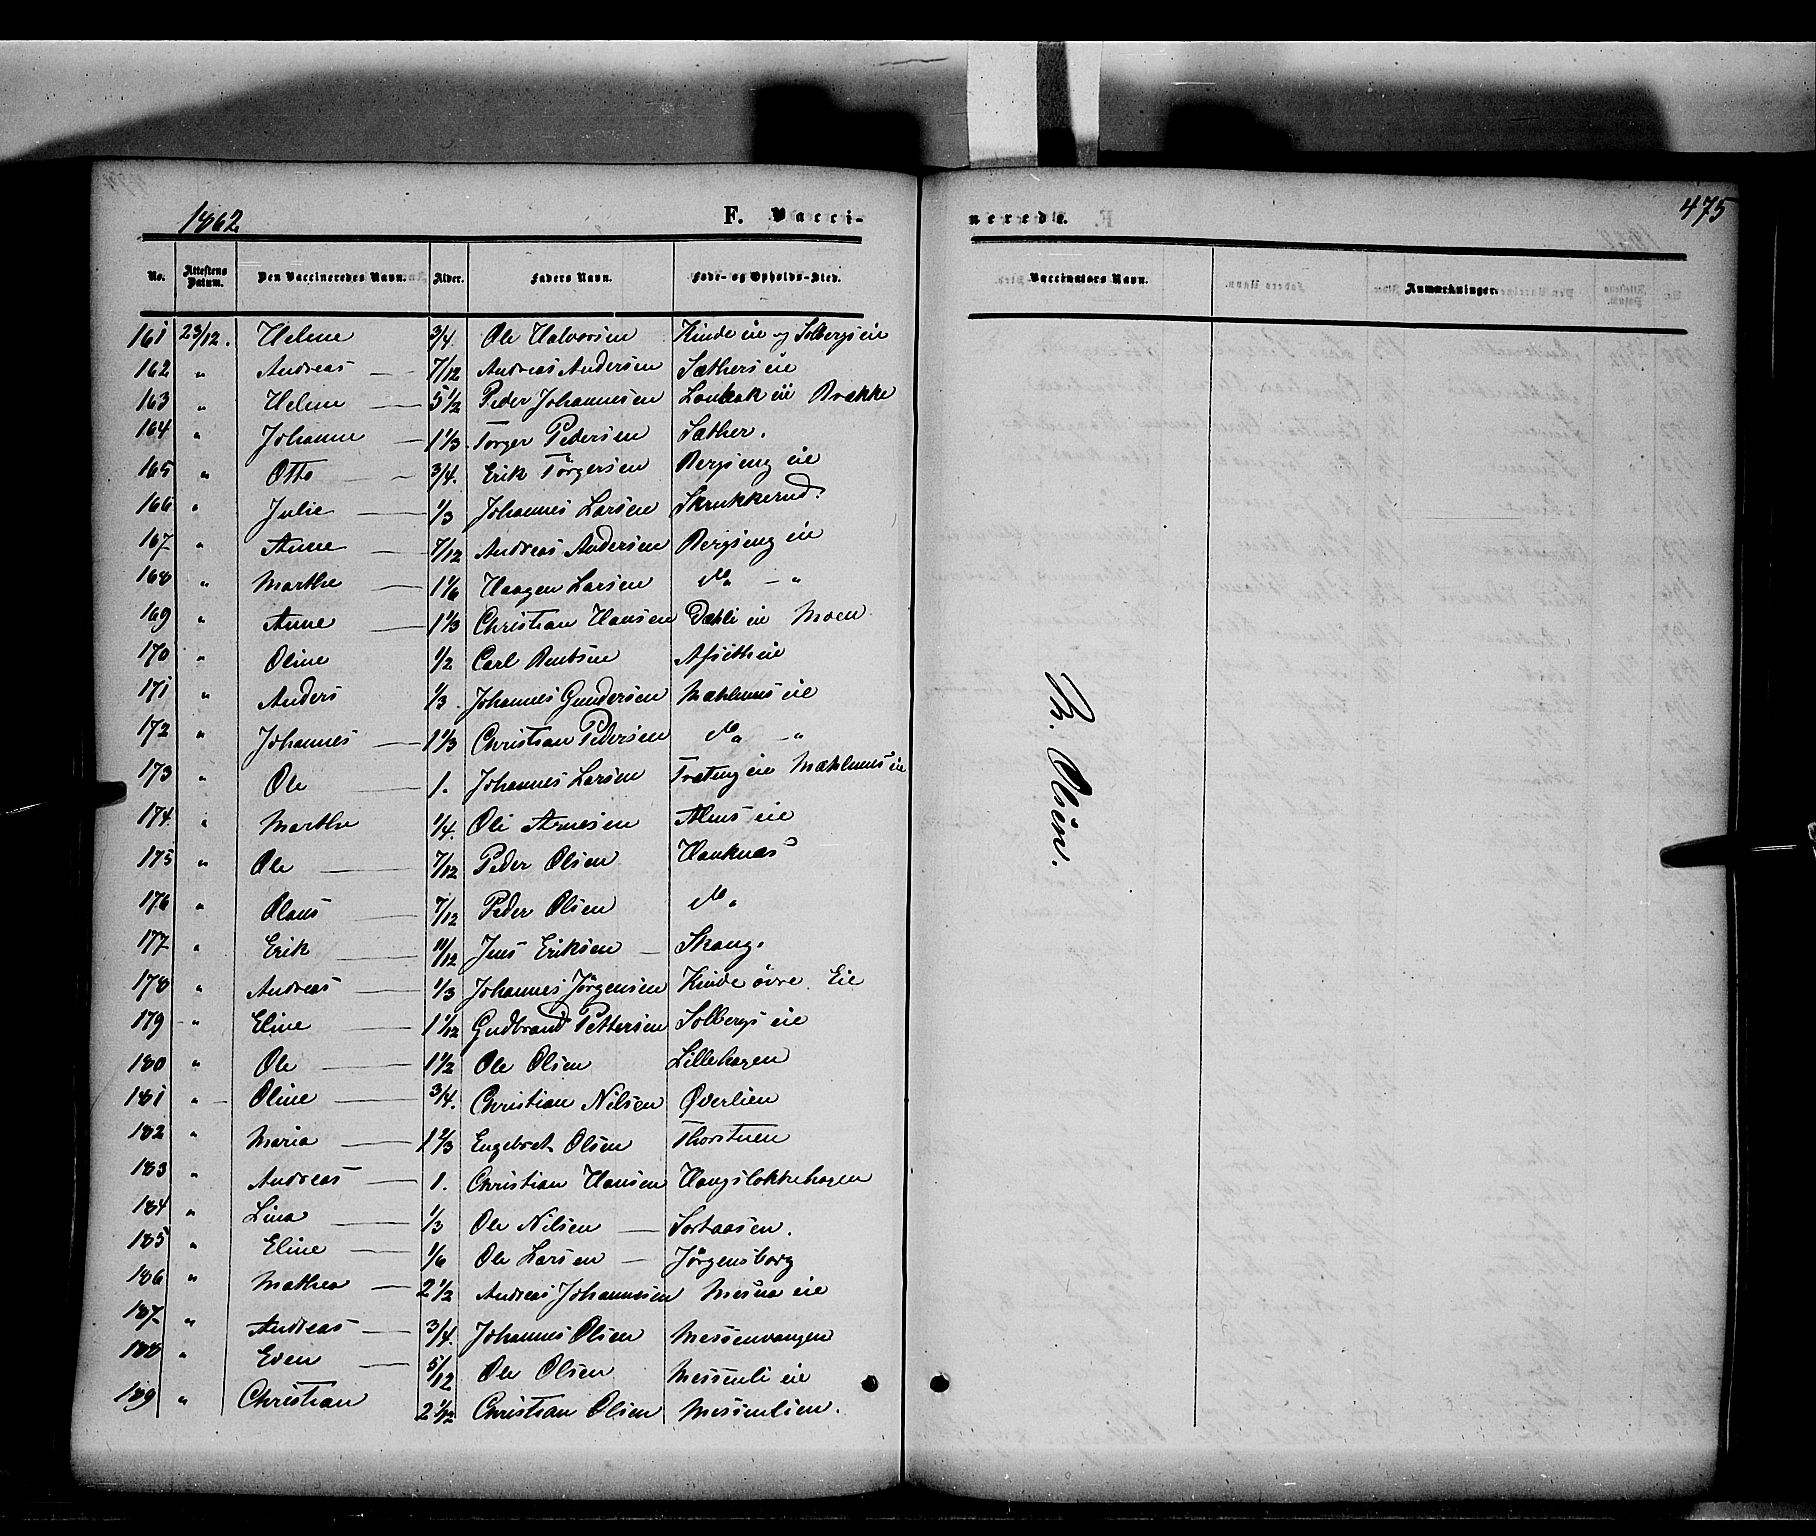 1862 F. Vacci- nerede. 475
No. Attestens Datum. Den Vaccineredes Navn. Alder. Faders Navn. Føde- og Opholds-Sted. Vaccinators Navn. Anmærkninger.
161 23/12. Helene 3/4. Ole Halvorsen Kinde eie og Solbergs eie
162 " Andreas 7/12 Andreas Andersen Sæthers eie
163 " Helene 5 1/2 Peder Johannesen eie Brække
164 " Johanne 1 1/3. Torger Pedersen Sæther.
165 " Otto 3/4. Erik Torgersen Bergseng eie
166 " Julie 1/3 Johannes Larsen Skrukkerud.
167 " Anne 7/12 Andreas Andersen Bergseng eie
168 " Marthe 1 1/6 Haagen Larsen do - "
169 " Anne 1 1/3 Christian Hansen Dæhli eie Moen
170 " Oline 1/2 Carl Berntsen eie
171 " Anders 1/3. Johannes Gundersen Mæhlums eie
172 " Johannes 1 1/3 Christian Pedersen do - "
173 " Ole 1. Johannes Larsen Trætung eie Mæhlums eie
174. " Marthe 1/4. Ole Arnesen Alms eie
175 " Ole 7/12 Peder Olsen Hauknæs
176 " Olaus 7/12 Peder Olsen do
177 " Erik 11/12 Jens Eriksen Skaug.
178 " Andreas 1/3 Johannes Jørgensen Kinde øvre Eie
179 " Eline 1 1/12 Gudbrand Pettersen Solbergs eie
180 " Ole 1 1/2 Ole Olsen Lillehagen
181 " Oline 3/4. Christian Nilsen Øverlien
182 " Maria 1 2/3 Engebret Olsen Thorstuen
183 " Andreas 1. Christian Hansen Haugsløkkehagen
184 " Lina 1/3 Ole Nilsen Sortaasen.
185 " Eline 1/6 Ole Larsen Jørgensborg
186 " Mathea 2 1/2 Andreas Johannesen Mesna eie
187 " Andreas 3/4. Johannes Olsen Messenvangen
188 " Even 5/12 Ole Olsen Messenli eie
189 " Christian 2 1/12 Christian Olsen Messenlien.
B. Olsen.